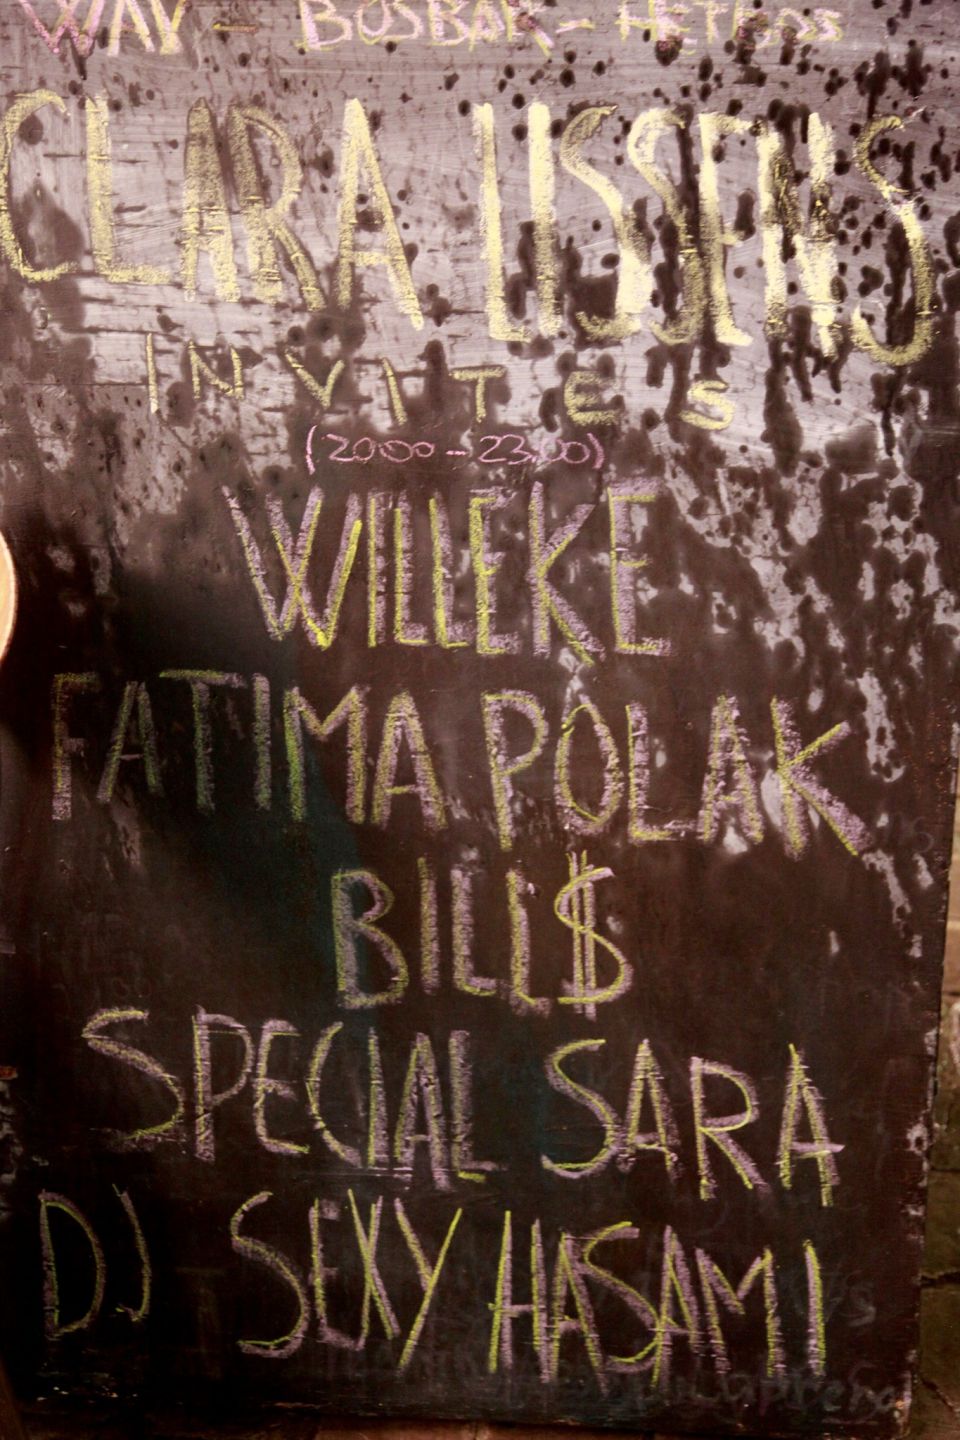 WAV - BOSBAR - HETBOS
CLARA LISSENS
INVITES
(20:00 - 23:00)
WILLEKE
FATIMA POLAK
BILL$
SPECIAL SARA
DJ SEXY HASAMI